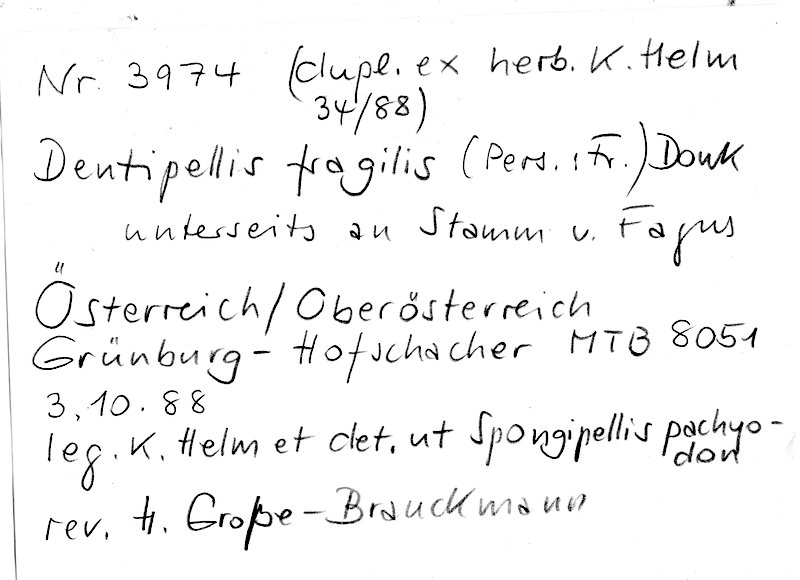 Nr. 3974 (dupl. ex herb. K. Helm
34/88)
Dentipellis fragilis (Pers.: Fr.) Donk
unterseits an Stamm v. Fagus
Österreich/Oberösterreich
Grünburg-Hofschacher MTB 8051
3.10.88
leg. K. Helm et det. ut Spongipellis pachyo-
don
rev. H. Große-Brauckmann